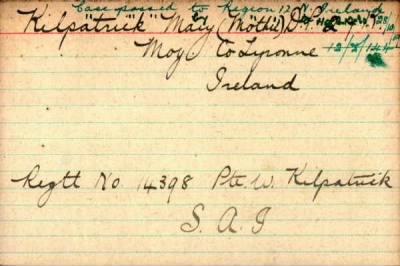 Case passed to Region 12 N. Ireland
Kilpatrick Mary (Mother) D.P. &
Moy Co Tyronne 12/2/44
Ireland
Regtt No. 14398 Pte. W. Kilpatrick
S. A. I